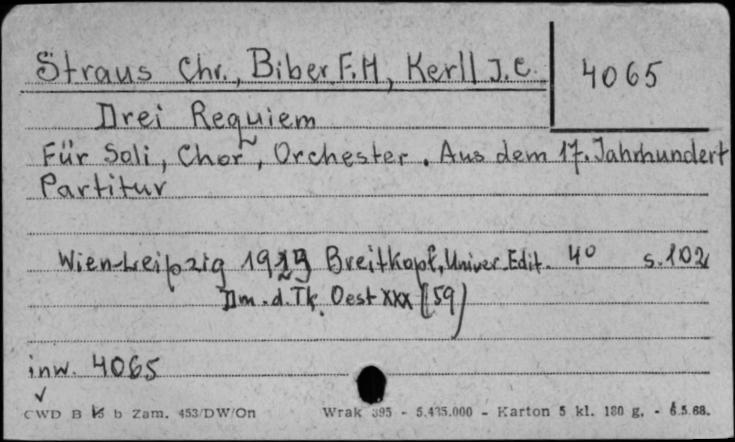 Straus Chr., Biber F.H, Kerll J.C.
4065
Drei Requiem
Für Soli, Chor, Orchester. Aus dem 17. Jahrhundert
Partitur
Wien-Leipzig 1923 Breitkopf, Univer. Edit. 4° S. 102
Dm. d. Tk. Oest XXX (59)
inw. 4065
CWD B b Zam. 453/DW/On Wrak 395 - 5.435.000 - Karton 5 kl. 180 g. - 6.5.68.